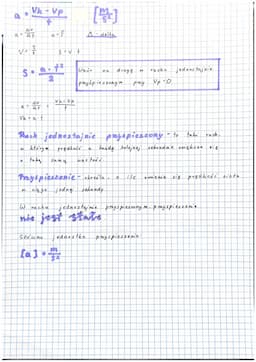 a = Vk - Vp / t [m/s²]
a = ΔV/Δt Δ - delta
s = a · t² / 2
Wzór na drogę w ruchu jednostajnie
przyspieszonym przy Vp = 0
a = ΔV/Δt = Vk - Vp / t
Vk = a · t
Ruch jednostajnie przyspieszony - to taki ruch,
w którym prędkość w każdej kolejnej sekundzie zwiększa się
o taką samą wartość
Przyspieszenie - określa, o ile zmienia się prędkość ciała
w ciągu jednej sekundy
W ruchu jednostajnie przyspieszonym przyspieszenie
nie jest stałe
Główna jednostka przyspieszenia
[a] = m/s²